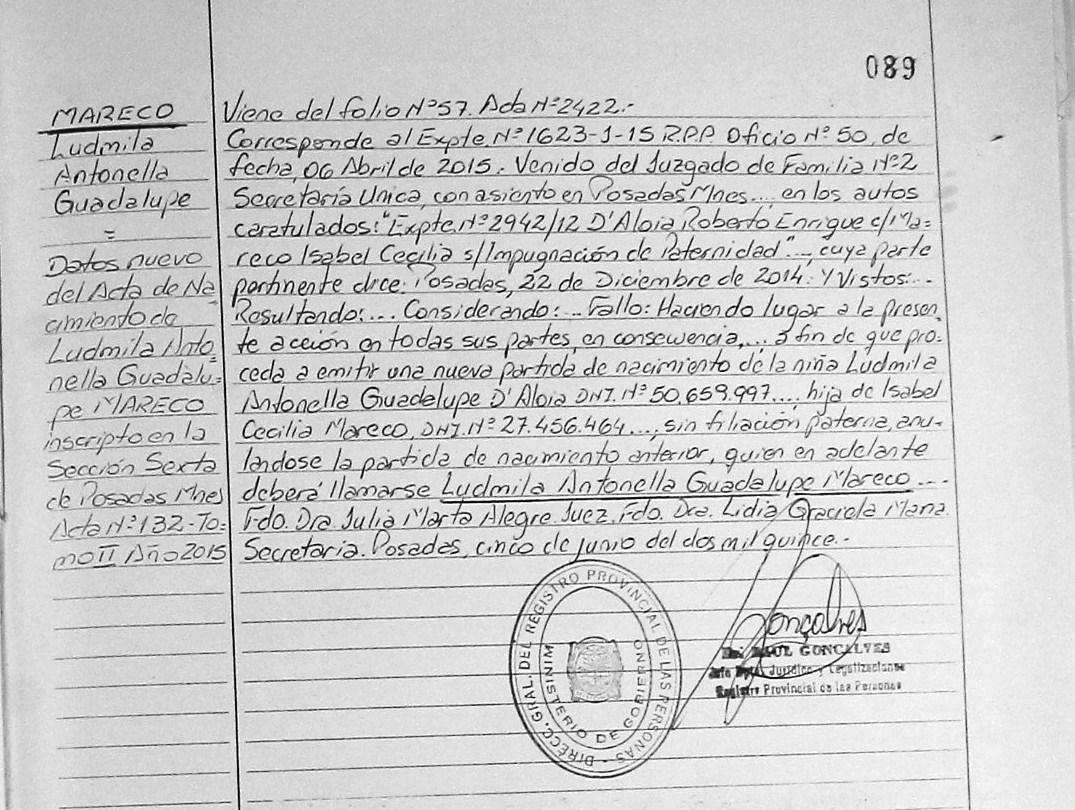 089
MARECO
Ludmila
Antonella
Guadalupe
=
Datos nuevo
del Acta de Na
cimiento de
Ludmila Anto=
nella Guadalu=
pe MARECO
inscripto en la
Sección Sexta
de Posadas Mnes
Acta Nº132-To=
mo II Año 2015
Viene del folio Nº57. Acta Nº2422.-
Corresponde al Expte. Nº1623-1-15 R.P.P. Oficio Nº50, de
fecha, 06 Abril de 2015. Venido del Juzgado de Familia Nº2
Secretaría Unica, con asiento en Posadas Mnes... en los autos
caratulados: "Expte. Nº2942/12 D'Aloia Roberto Enrique c/Ma=
reco Isabel Cecilia s/Impugnación de Paternidad"..., cuya parte
pertinente dice: Posadas, 22 de Diciembre de 2014. Y Vistos:...
Resultando:... Considerando:... Fallo: Haciendo lugar a la presen
te acción en todas sus partes, en consecuencia,... a fin de que pro=
ceda a emitir una nueva partida de nacimiento de la niña Ludmila
Antonella Guadelupe D'Aloia DNI. Nº50.659.997.... hija de Isabel
Cecilia Mareco, DNI. Nº27.456.464..., sin filiación paterna, anu-
lándose la partida de nacimiento anterior, quien en adelante
deberá llamarse Ludmila Antonella Guadalupe Mareco....
Fdo. Dra. Julia Marta Alegre. Juez. Fdo. Dra. Lidia Graciela Mana.
Secretaria. Posadas, cinco de junio del dos mil quince.-
DIRECC. GRAL. DEL REGISTRO PROVINCIAL DE LAS PERSONAS
MINISTERIO DE GOBIERNO
Gonçalves
RAUL GONCALVES
Jefe Dpto. Jurídico y Legalizaciones
Registro Provincial de las Personas